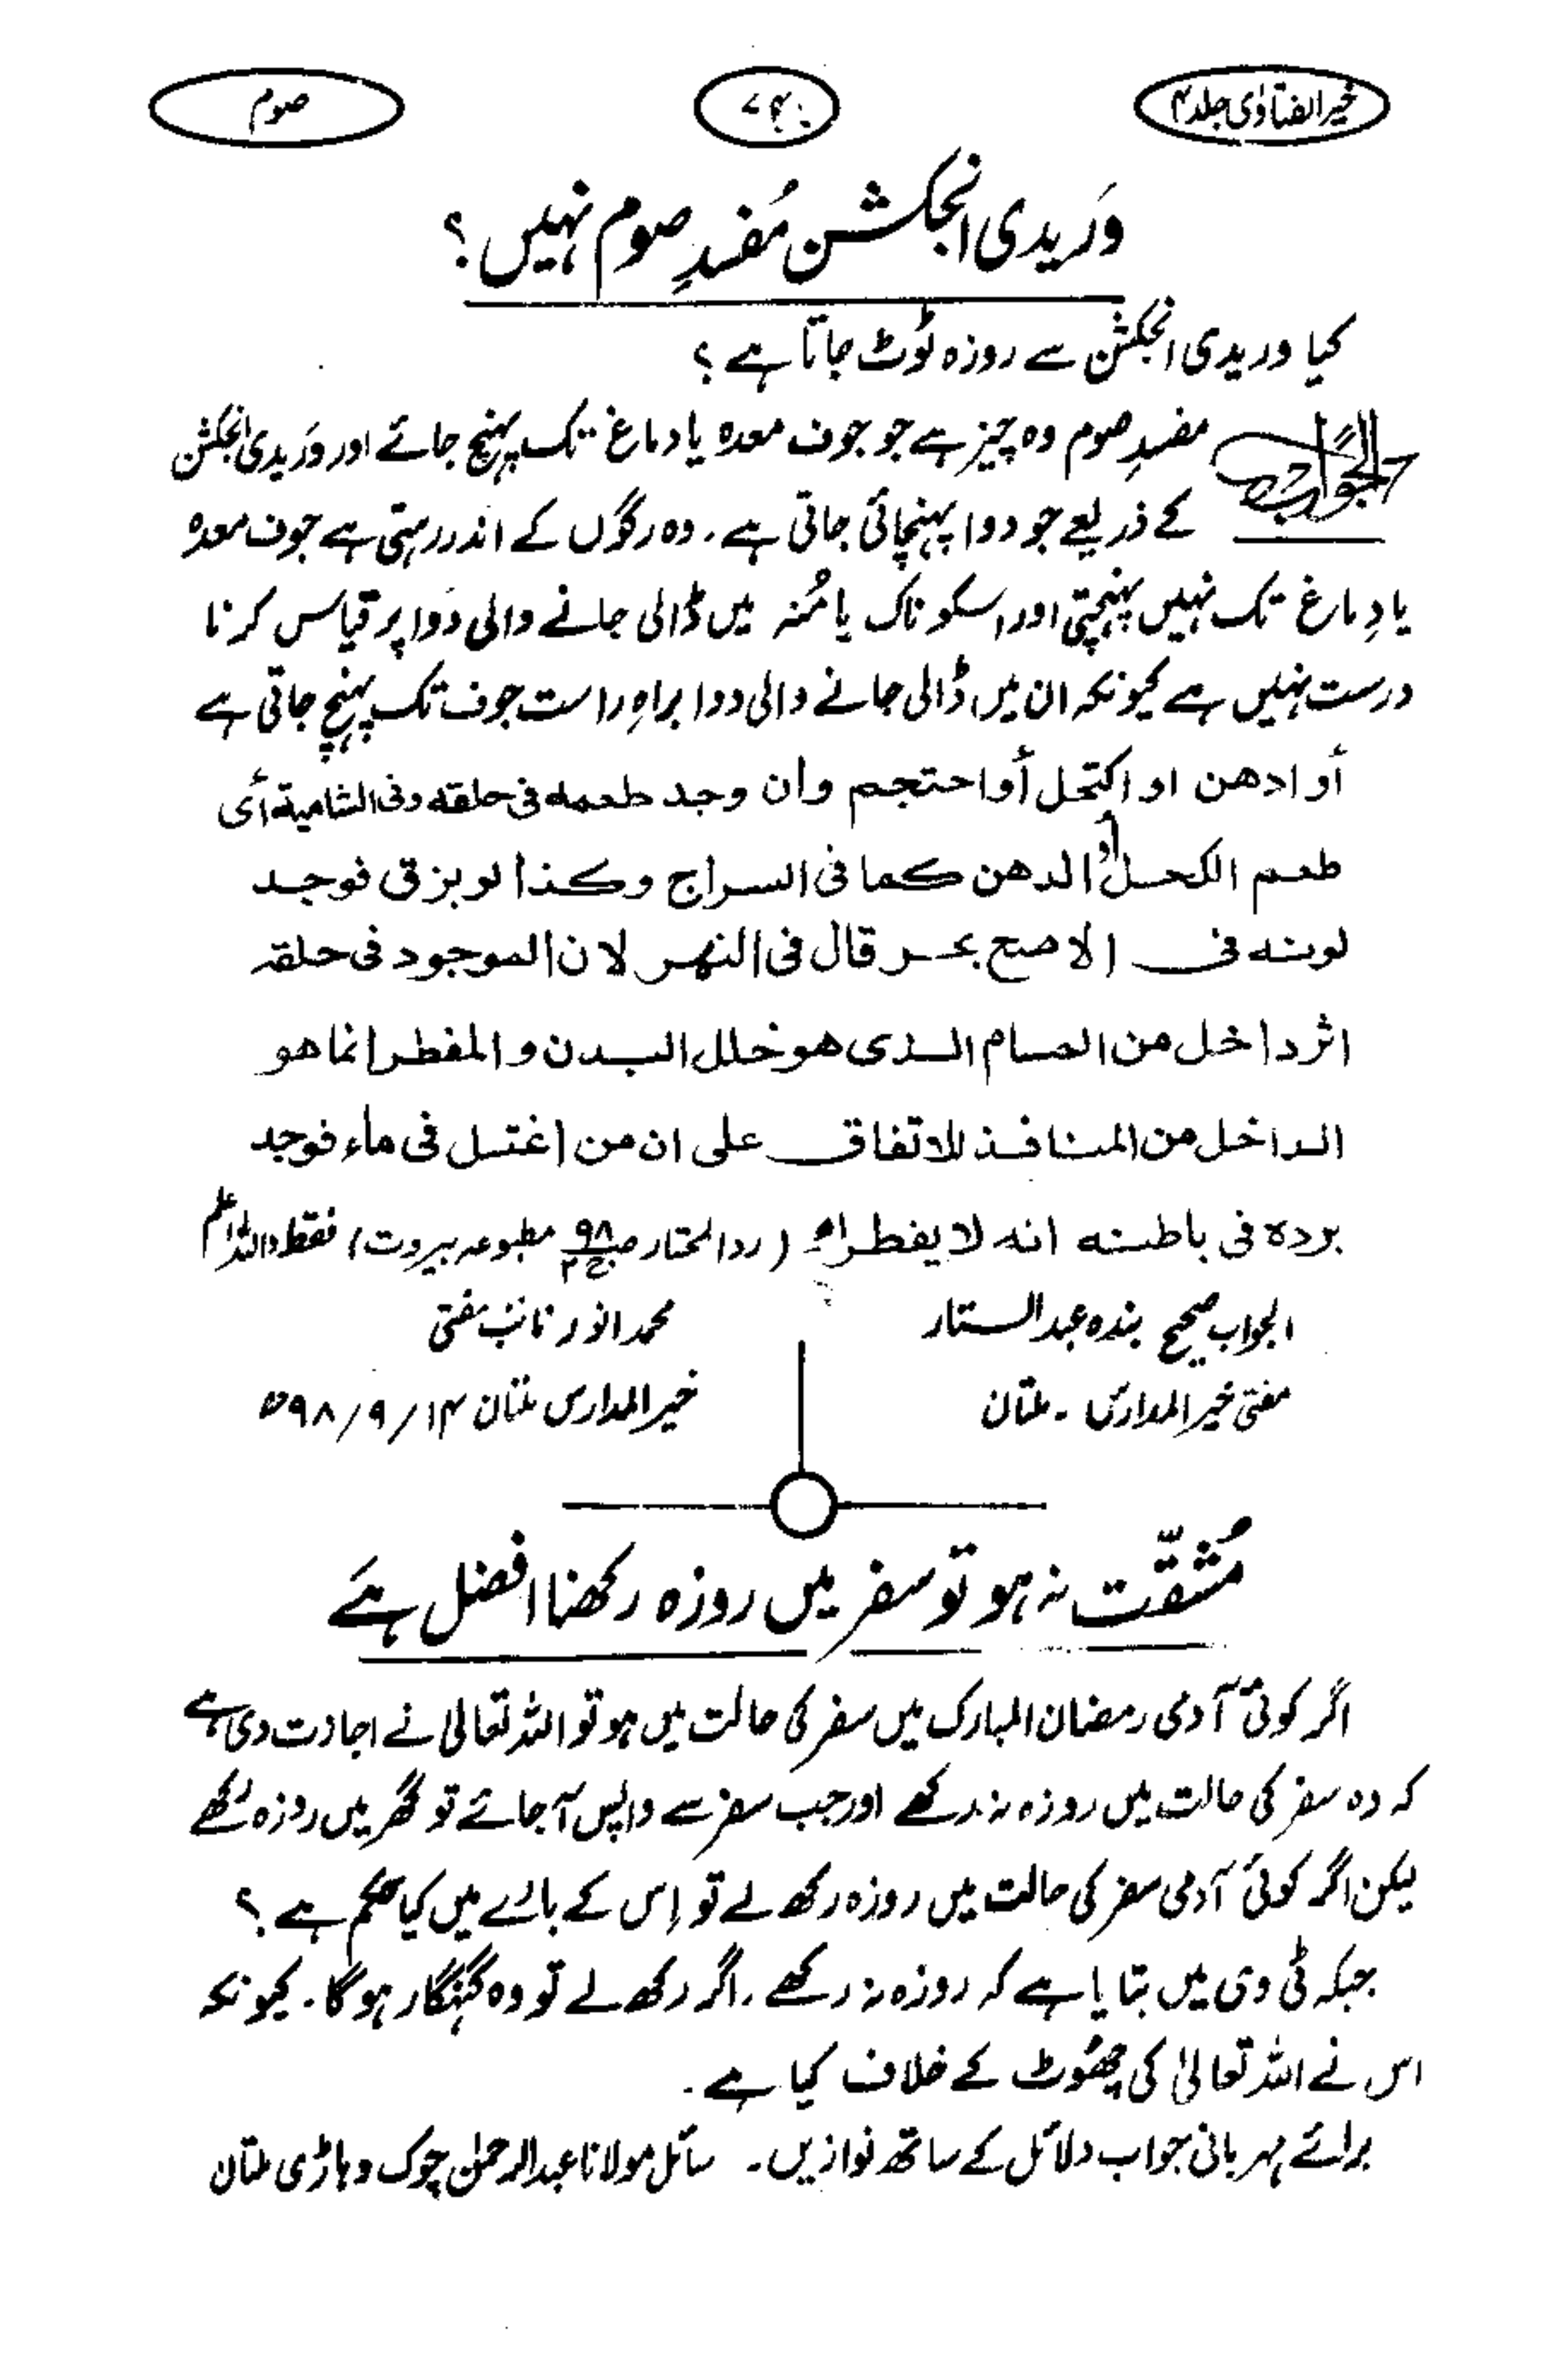 خیر الفتاوٰی جلد ۴
صوم
وَریدی انجکشن مُفسدِ صوم نہیں؟
کیا وریدی انجکشن سے روزہ ٹوٹ جاتا ہے؟
الجواب مفسدِ صوم وہ چیز ہے جو جوف معدہ یا دماغ تک پہنچ جائے اور وَریدی انجکشن
کے ذریعے جو دوا پہنچائی جاتی ہے۔ وہ رگوں کے اندر رہتی ہے جوف معدہ
یا دِماغ تک نہیں پہنچتی اور اسکو ناک یا مُنہ میں ڈالی جانے والی دَوا پر قیاس کرنا
درست نہیں ہے کیونکہ ان میں ڈالی جانے والی دوا براہِ راست جوف تک پہنچ جاتی ہے
أو ادهن او اكتحل أو احتجم وان وجد طعمه فى حلقه وفى الشامية أى
طعم الكحل أو الدهن كما فى السراج وكذا لو بزق فوجد
لونه فى الاصح بحر قال فى النهر لان الموجود فى حلقه
اثر داخل من المسام الذى هو خلل البدن و المفطر انما هو
الداخل من المنافذ للاتفاق على ان من اغتسل فى ماء فوجد
برده فى باطنه انه لا يفطر اھ (ردالمحتار ص۹۸ ج۲ مطبوعہ بیروت) فقط واللہ اعلم
الجواب صحیح بندہ عبدالستار
مفتی خیر المدارس ۔ ملتان
محمد انور نائب مفتی
خیر المدارس ملتان ۱۴/۹/۹۸ھ
مُشقّت نہ ہو تو سفر میں روزہ رکھنا افضل ہے
اگر کوئی آدمی رمضان المبارک میں سفر کی حالت میں ہو تو اللہ تعالیٰ نے اجازت دی ہے
کہ وہ سفر کی حالت میں روزہ نہ رکھے اور جب سفر سے واپس آ جائے تو گھر میں روزہ رکھے
لیکن اگر کوئی آدمی سفر کی حالت میں روزہ رکھ لے تو اِس کے بارے میں کیا حکم ہے؟
جبکہ ٹی وی میں بتایا ہے کہ روزہ نہ رکھے ۔ اگر رکھ لے تو وہ گنہگار ہوگا۔ کیونکہ
اس نے اللہ تعالیٰ کی چھُوٹ کے خلاف کیا ہے۔
برائے مہربانی جواب دلائل کے ساتھ نوازیں۔ سائل مولانا عبدالرحمٰن چوک وہاڑی ملتان